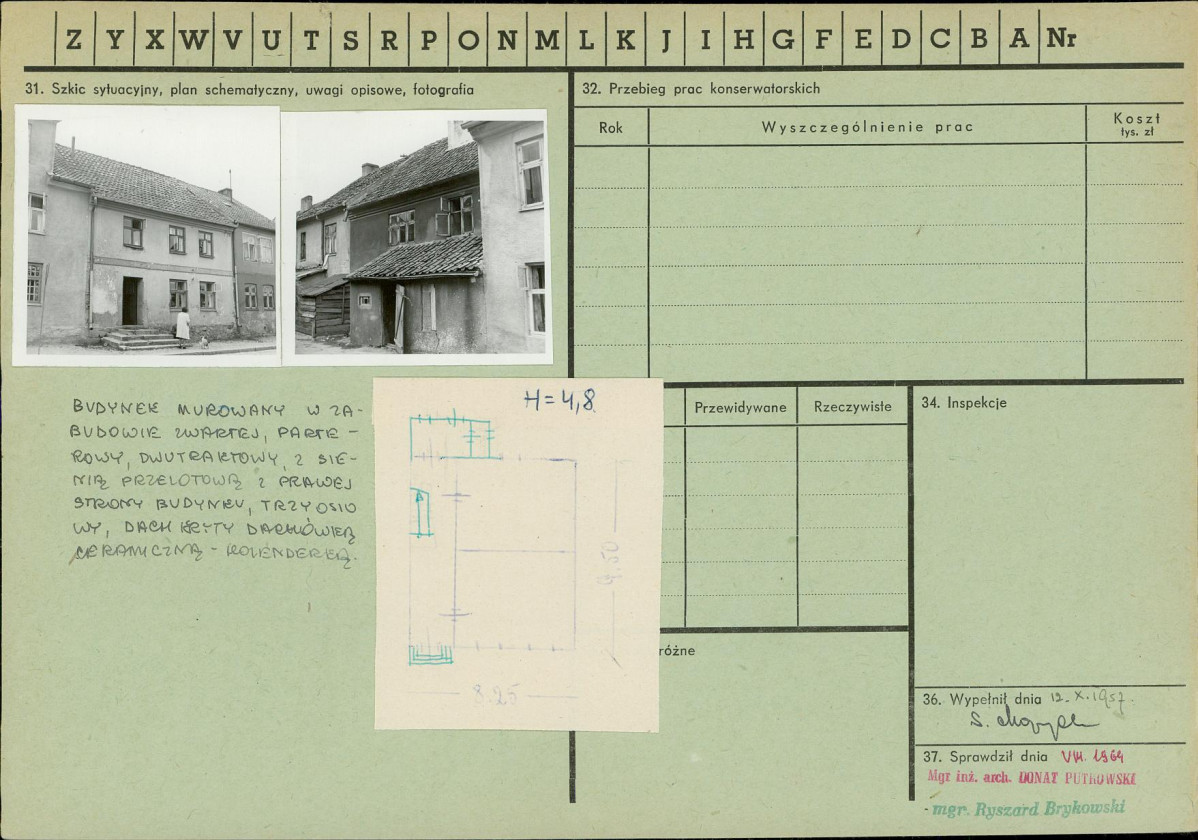 Z Y X W V U T S R P O N M L K J I H G F E D C B A Nr
31. Szkic sytuacyjny, plan schematyczny, uwagi opisowe, fotografia
BUDYNEK MUROWANY W ZA-
BUDOWIE ZWARTEJ, PARTE-
ROWY, DWUTRAKTOWY, Z SIE-
NIĄ PRZELOTOWĄ Z PRAWEJ
STRONY BUDYNKU, TRZYOSIO
WY, DACH KRYTY DACHÓWKĄ
CERAMICZNĄ - HOLENDERKĄ.
H = 4,8
9.50
8.25
32. Przebieg prac konserwatorskich
Rok
Wyszczególnienie prac
Koszt
tys. zł
Przewidywane
Rzeczywiste
różne
34. Inspekcje
36. Wypełnił dnia 12. X. 1957.
37. Sprawdził dnia VIII. 1964
Mgr inż. arch. DONAT PUTKOWSKI
mgr. Ryszard Brykowski